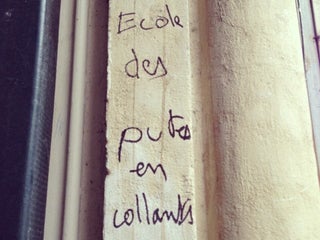 Ecole
des
putes
en
collants